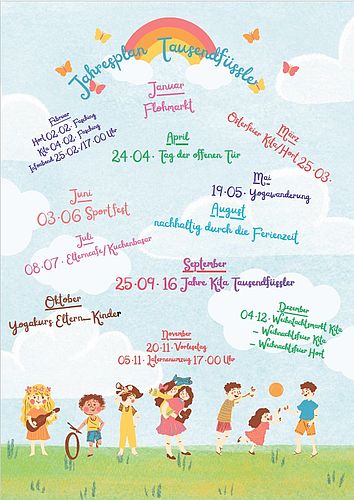 Jahresplan Tausendfüssler
Januar
Flohmarkt
Februar
Hort 02.02. Fasching
Kita 04.02. Fasching
Infoabend 25.02./17.00 Uhr
März
Osterfeier Kita/Hort 25.03.
April
24.04. Tag der offenen Tür
Mai
19.05. Yogawanderung
Juni
03.06 Sportfest
August
nachhaltig durch die Ferienzeit
Juli
08.07. Elterncafe/Kuchenbasar
September
25.09. 16 Jahre Kita Tausendfüssler
Oktober
Yogakurs Eltern-Kinder
Dezember
04.12. Weihnachtsmarkt Kita
- Weihnachtsfeier Kita
- Weihnachtsfeier Hort
November
20.11. Vorlesetag
05.11. Laternenumzug 17.00 Uhr